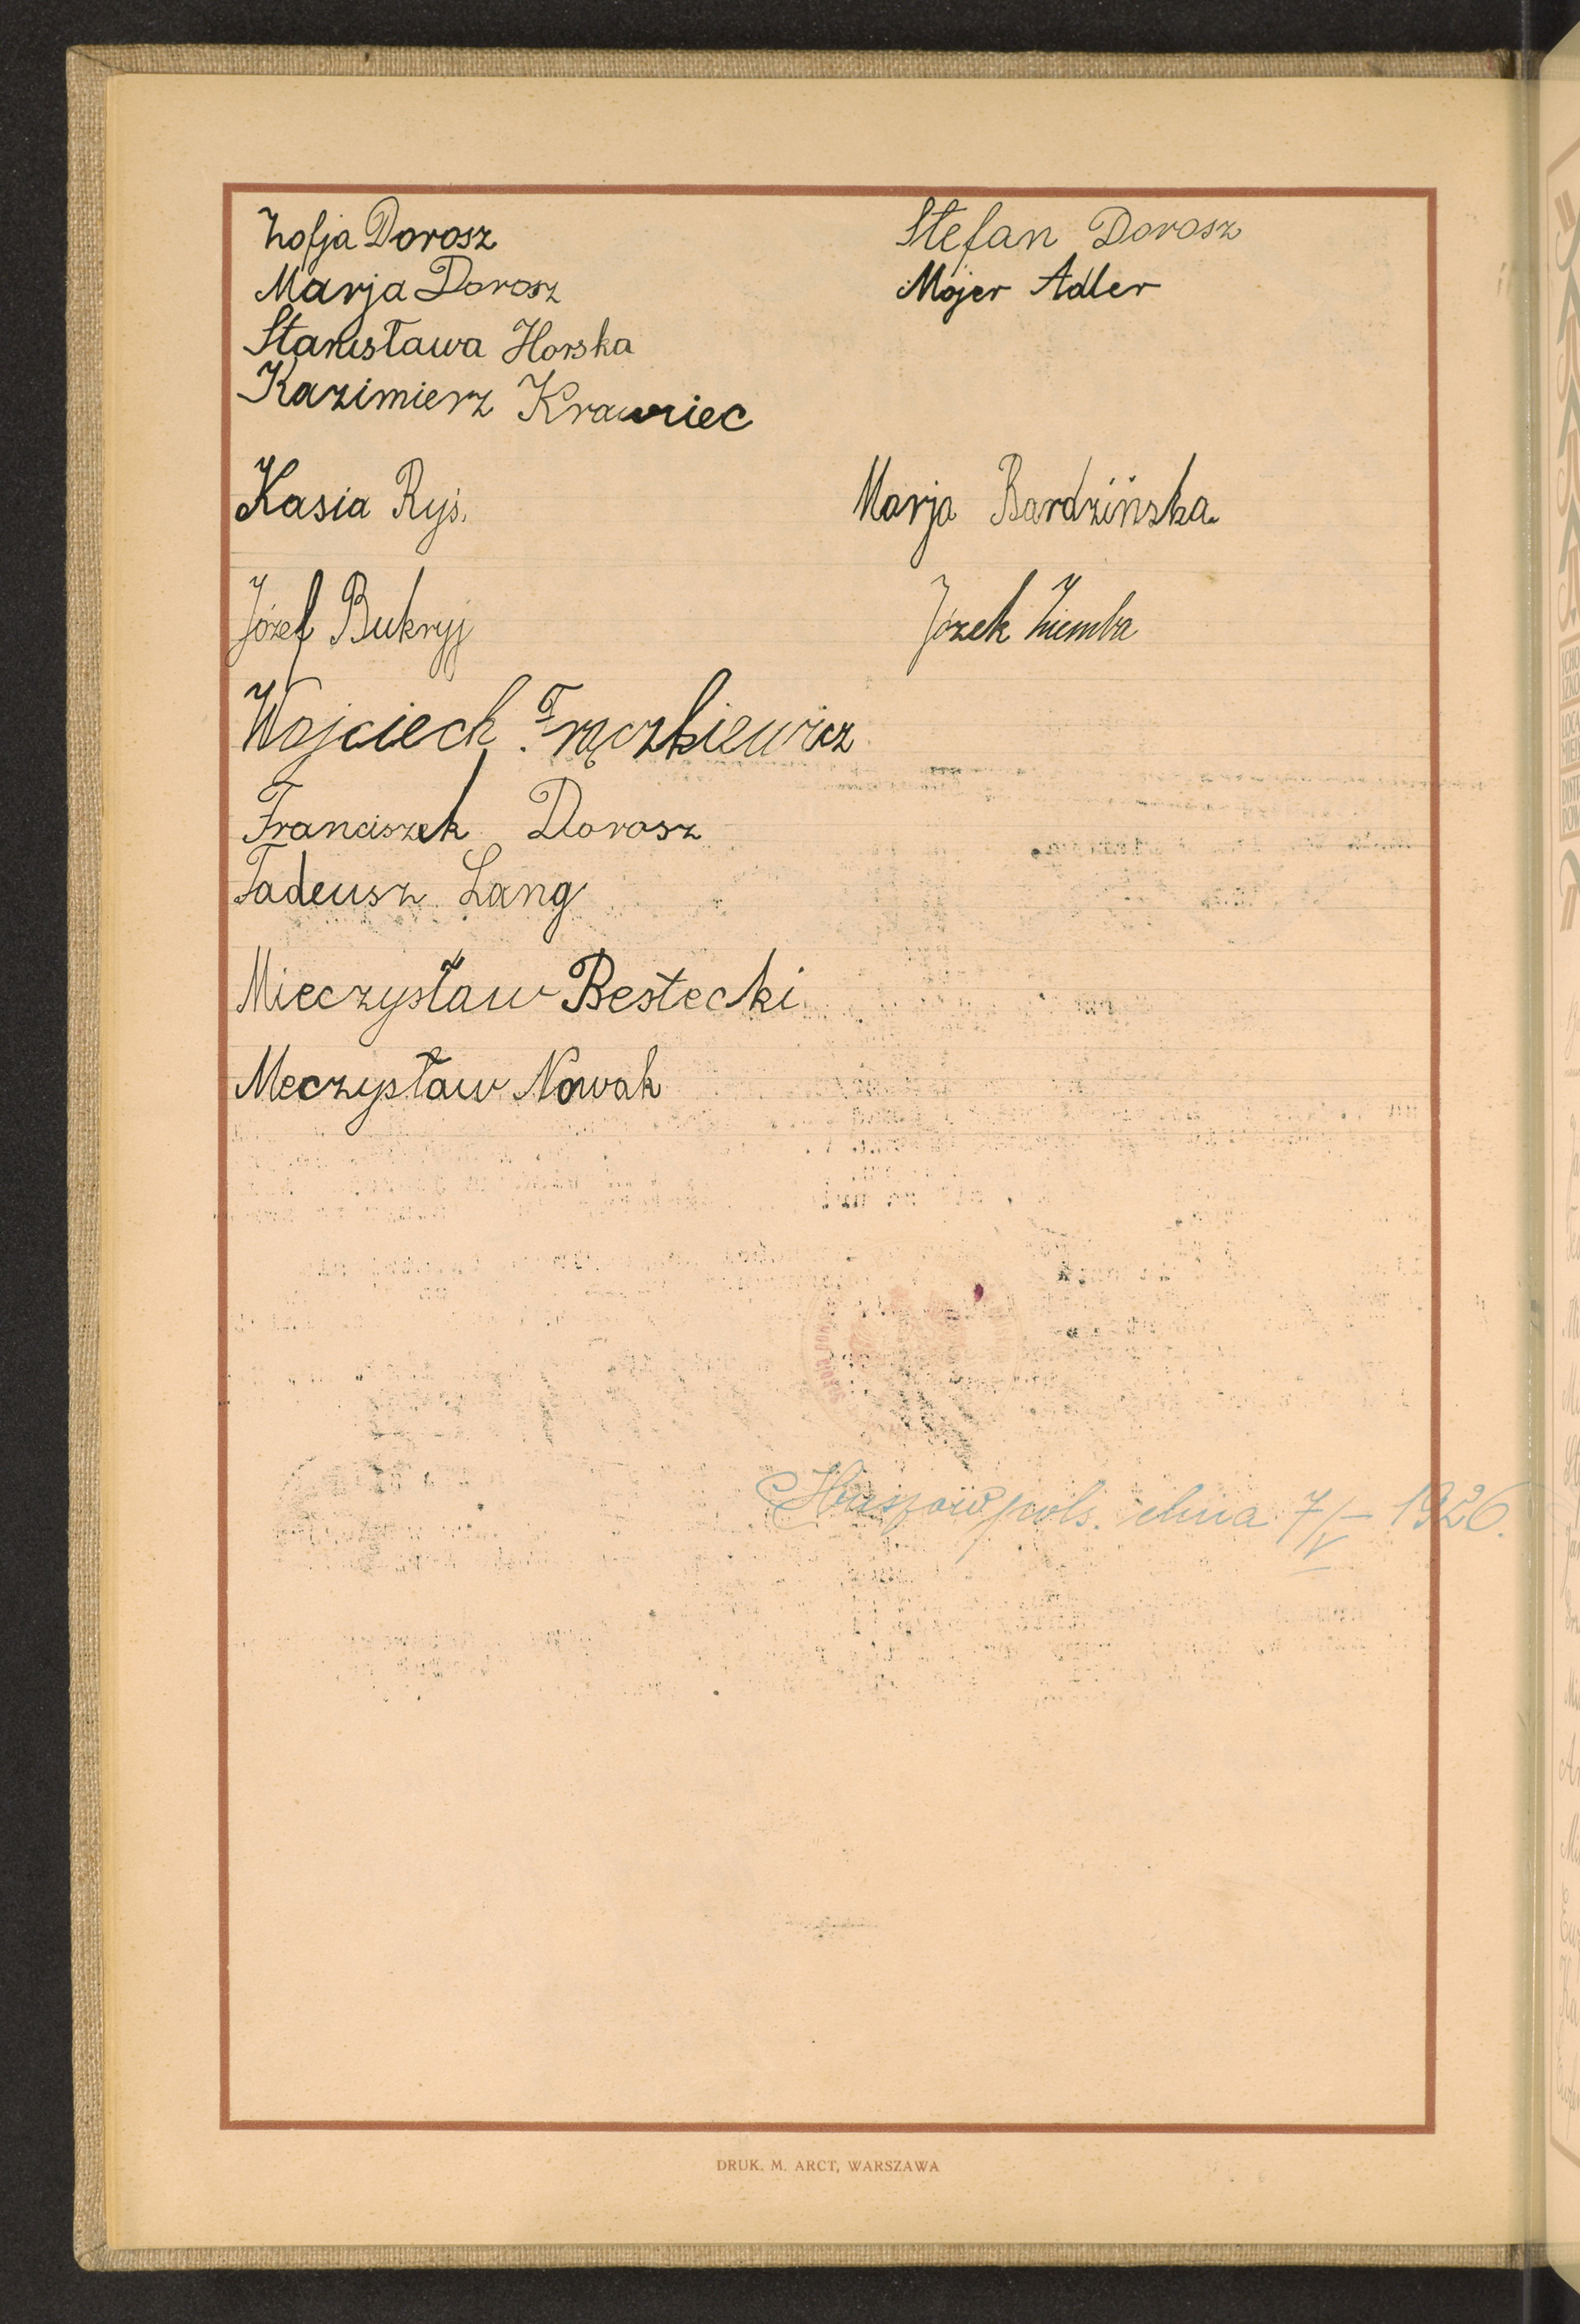 Zofja Dorosz
Marja Dorosz
Stanisława Horska
Kazimierz Krawiec
Kasia Ryś.
Józef Bukryj
Wojciech Frączkiewicz
Franciszek Dorosz
Tadeusz Lang
Mieczysław Bestecki
Meczysław Nowak
Stefan Dorosz
Mojer Adler
Marja Bardzińska
Józek Ziemba
dnia 7/V 1926.
DRUK. M. ARCT, WARSZAWA